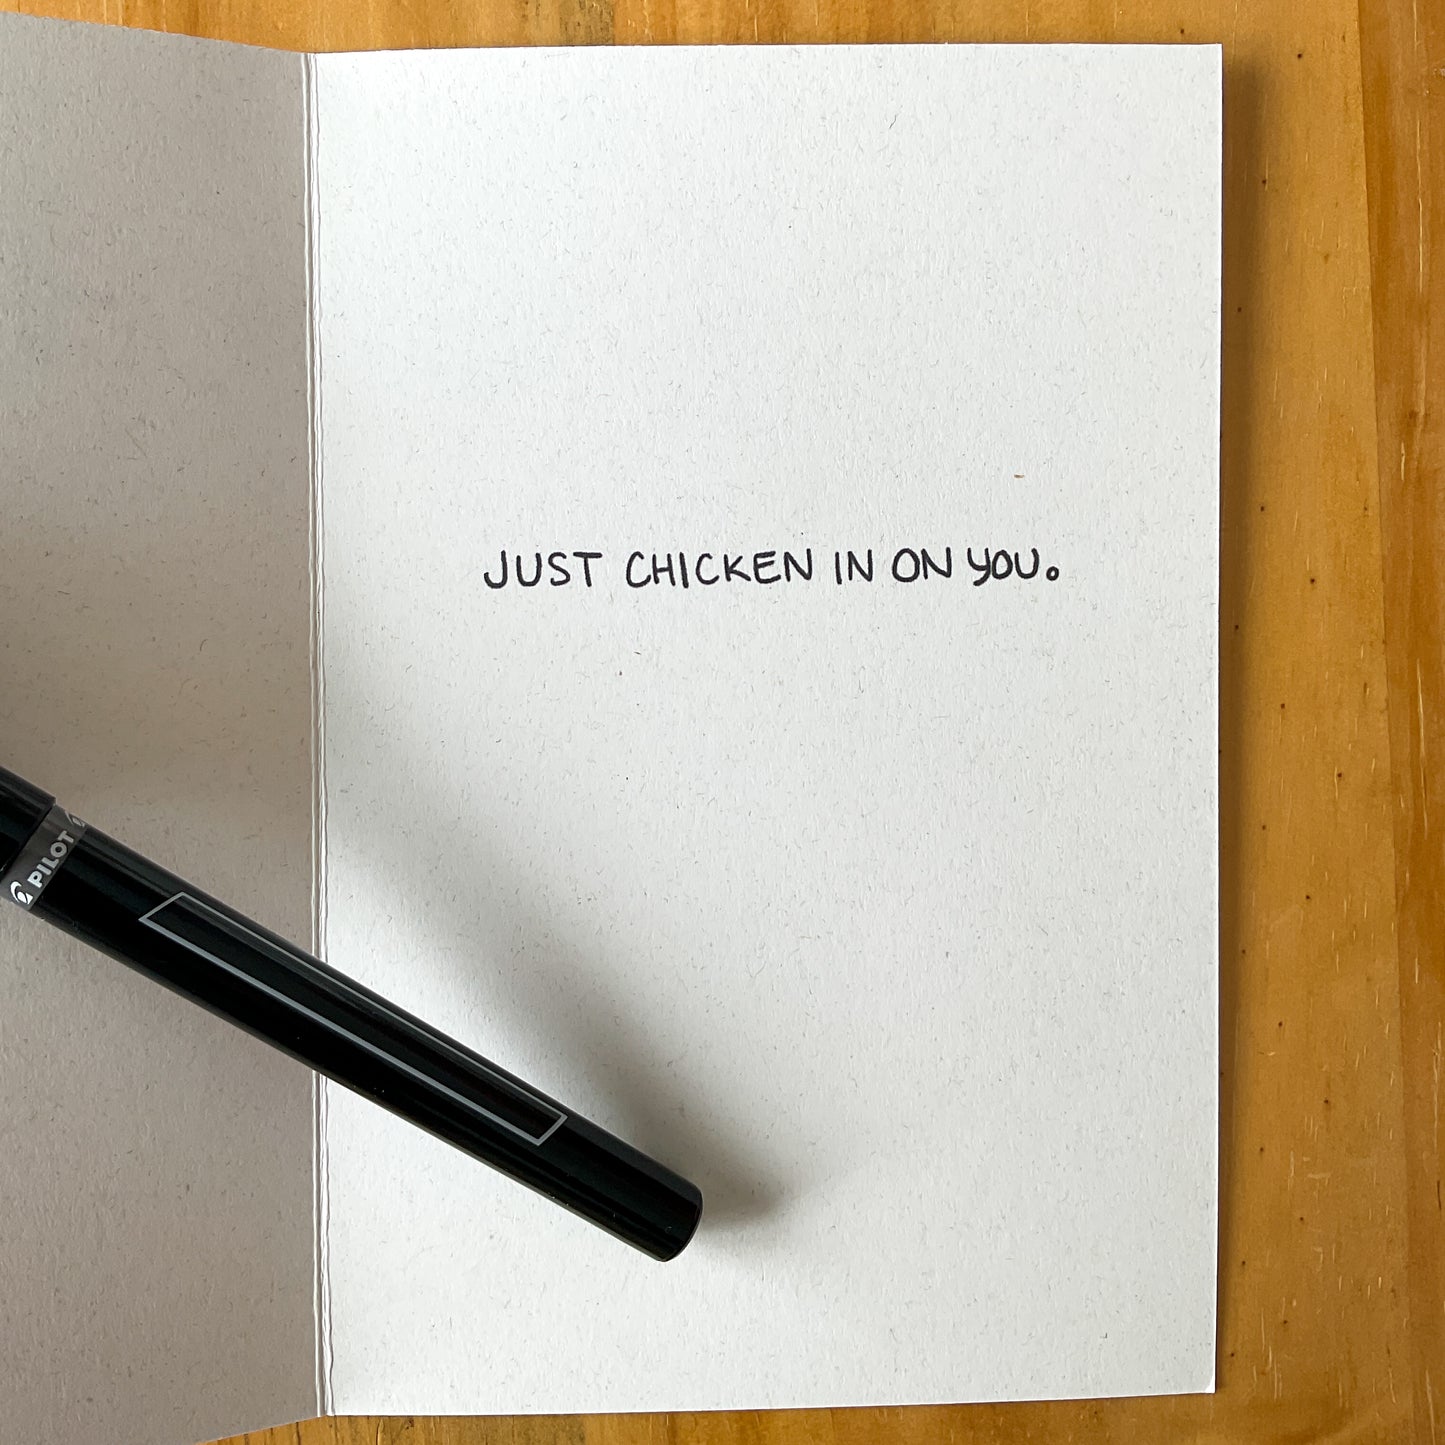 JUST CHICKEN IN ON YOU.
PILOT